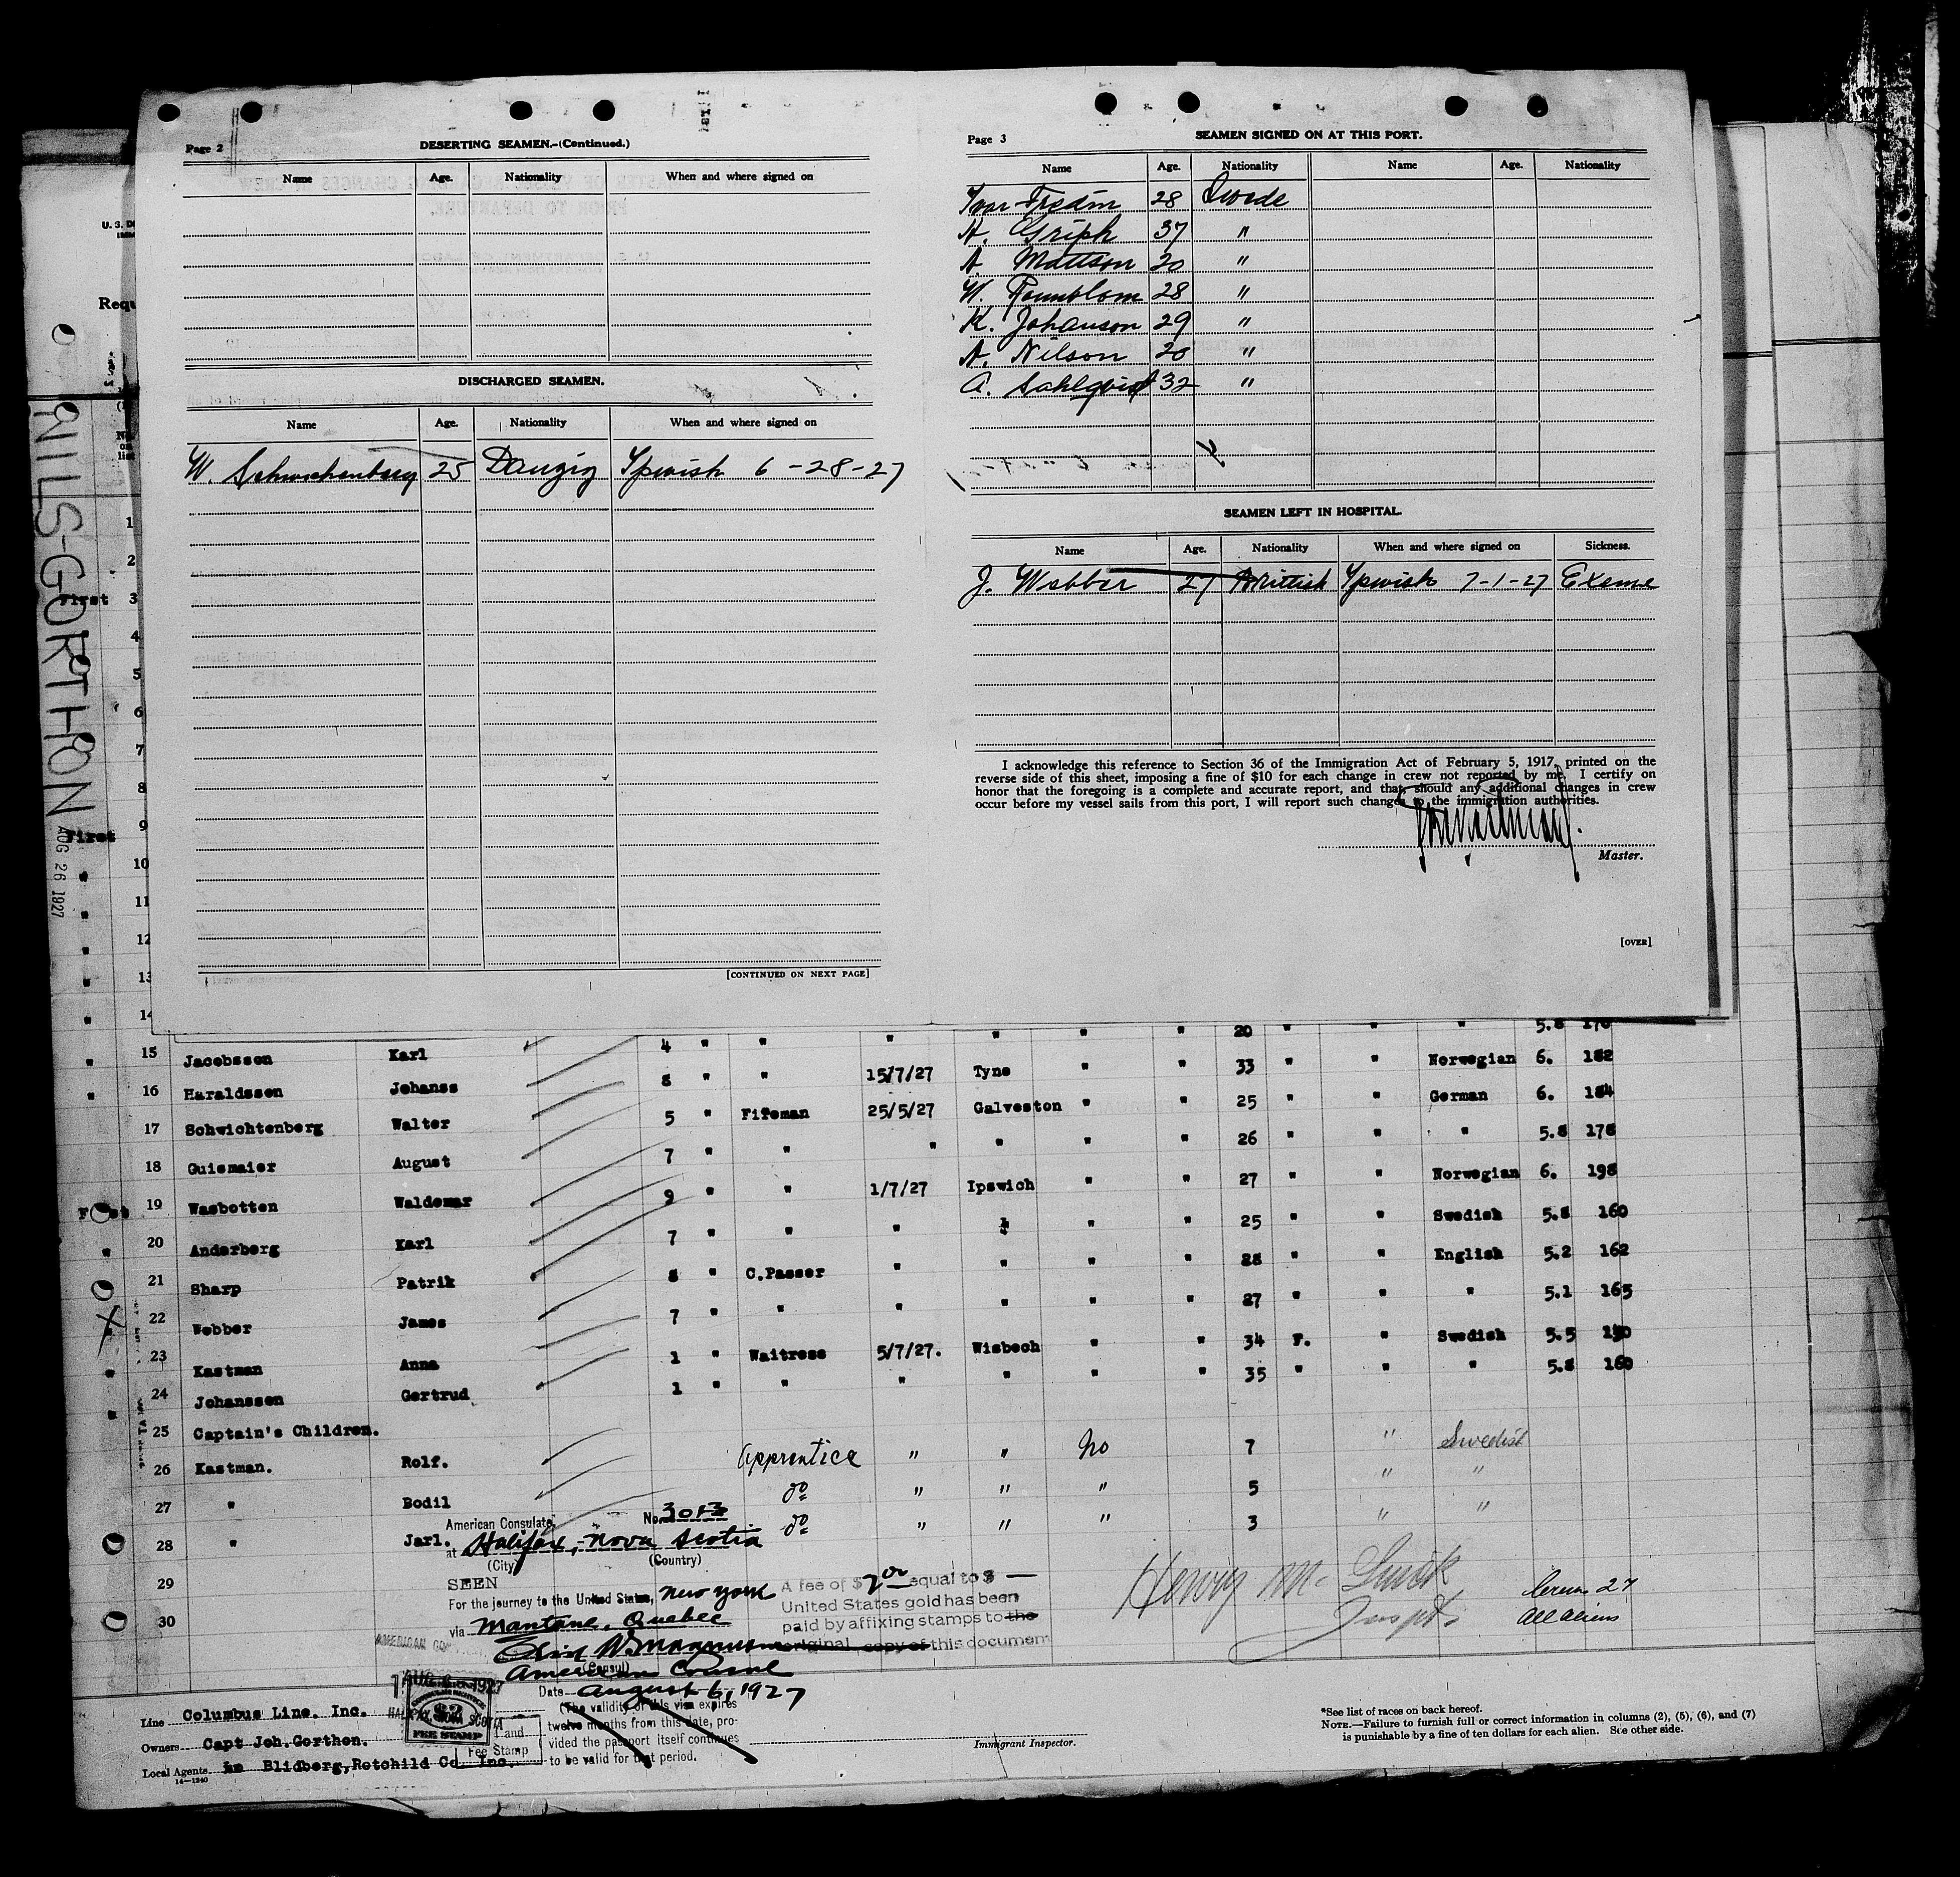 Page 2
DESERTING SEAMEN.-(Continued.)
Name Age. Nationality When and where signed on
DISCHARGED SEAMEN.
Name Age. Nationality When and where signed on
W. Schwichenberg 25 Danzig Ipwish 6-28-27
[CONTINUED ON NEXT PAGE]
Page 3
SEAMEN SIGNED ON AT THIS PORT.
Name Age. Nationality Name Age. Nationality
Ivar 28 Swede
A. Griph 37 "
A. Mattson 20 "
W. 28 "
K. Johanson 29 "
A. Nilson 20 "
A. Sahlqvist 32 "
SEAMEN LEFT IN HOSPITAL.
Name Age. Nationality When and where signed on Sickness.
J. Webber 27 Brittish Ipwish 7-1-27 Exeme
I acknowledge this reference to Section 36 of the Immigration Act of February 5, 1917, printed on the
reverse side of this sheet, imposing a fine of $10 for each change in crew not reported by me. I certify on
honor that the foregoing is a complete and accurate report, and that, should any additional changes in crew
occur before my vessel sails from this port, I will report such changes to the immigration authorities.
Master.
[OVER]
U. S. DE
IMM
Requ
NILS-GORTHON
AUG 26 1927
1
2
First 3
4
5
6
7
8
First 9
10
11
12
13
14
" " " " 20 " " " 5.8 178
15 Jacobssen Karl 4 " " 15/7/27 Tyne " " 33 " " Norwegian 6. 182
16 Haraldssen Johanss 8 " " 25/5/27 Galveston " " 25 " " German 6. 184
17 Schwichtenberg Walter 5 " Fifeman " " " " 26 " " " 5.8 178
18 Guismaier August 7 " " 1/7/27 Ipswich " " 27 " " Norwegian 6. 198
19 Wasbotten Waldemar 9 " " " " " " 25 " " Swedish 5.8 160
20 Anderberg Karl 7 " " " " " " 28 " " English 5.2 162
21 Sharp Patrik 8 " C.Passer " " " " 27 " " " 5.1 165
22 Webber James 7 " " 5/7/27. Wisbech " " 34 F. " Swedish 5.5 130
23 Kastman Anna 1 " Waitress " " " " 35 " " " 5.8 160
24 Johanssen Gertrud 1 " "
25 Captain's Children.
26 Kastman. Rolf. Apprentice " " No 7 " Swedish
27 " Bodil do " " " 5 " "
28 " Jarl. do " " " 3 " "
29
30
American Consulate, No. 3013
at Halifax, Nova Scotia
(City) (Country)
SEEN
For the journey to the United States, New York
via Mantane, Quebec
(Consul)
American Consul
Date August 6, 1927
(The validity of this visa expires
twelve months from this date, pro-
vided the passport itself continues
to be valid for that period.
A fee of $2.00 equal to $ —
United States gold has been
paid by affixing stamps to the
original copy of this document
Henry M.
Inspt.
Crew 27
All aliens
AMERICAN CON
AUG 6 1927
HALIFAX, NOVA SCOTIA
$2
FEE STAMP
and
Fee Stamp
Line Columbus Line. Inc.
Owners Capt Joh.Gorthon.
Local Agents Blidberg,Rotchild Co. Inc.
14—1240
Immigrant Inspector.
*See list of races on back hereof.
NOTE.—Failure to furnish full or correct information in columns (2), (5), (6), and (7)
is punishable by a fine of ten dollars for each alien. See other side.